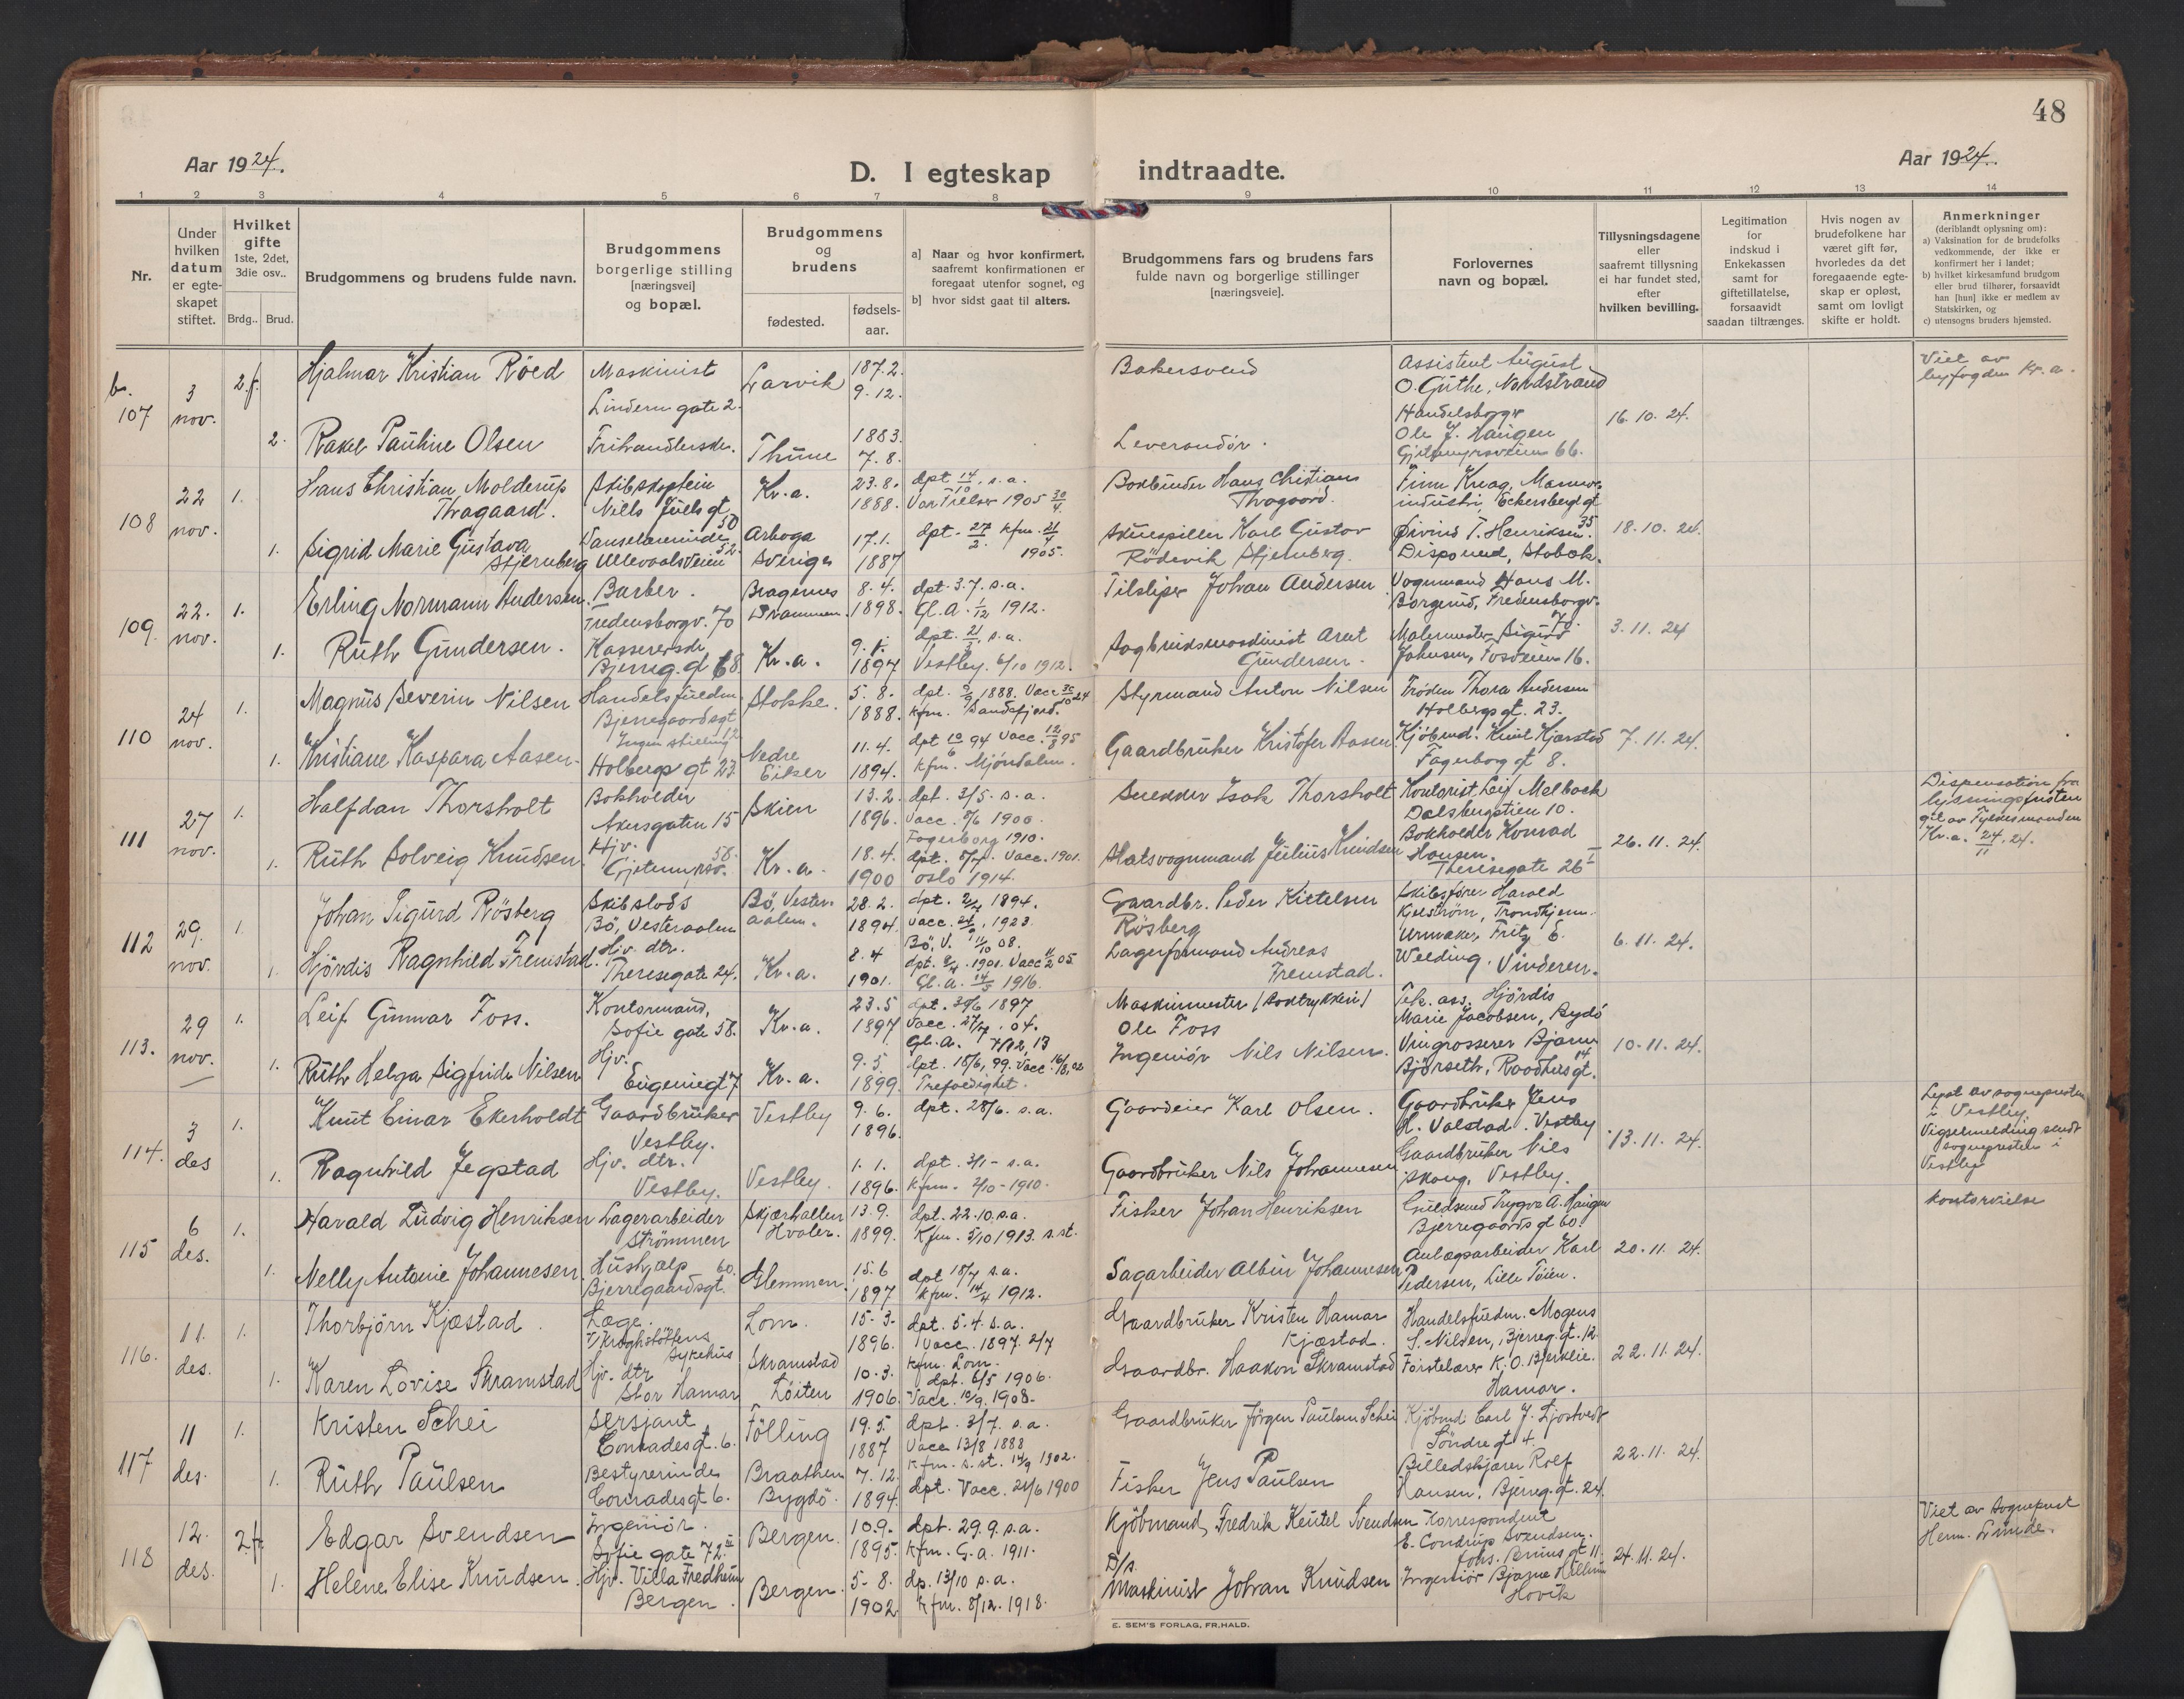 48
Aar 1924.
D. I egteskap indtraadte.
Aar 1924.
1 2 3 4 5 6 7 8 9 10 11 12 13 14
Nr.
Under hvilken datum er egte-skapet stiftet.
Hvilket gifte 1ste, 2det, 3die osv..
Brdg.. Brud.
Brudgommens og brudens fulde navn.
Brudgommens borgerlige stilling [næringsvei] og bopæl.
Brudgommens og brudens
fødested.
fødsels-aar.
a] Naar og hvor konfirmert, saafremt konfirmationen er foregaat utenfor sognet, og
b] hvor sidst gaat til alters.
Brudgommens fars og brudens fars fulde navn og borgerlige stillinger [næringsveie].
Forlovernes navn og bopæl.
Tillysningsdagene eller saafremt tillysning ei har fundet sted, efter hvilken bevilling.
Legitimation for indskud i Enkekassen samt for giftetillatelse, forsaavidt saadan tiltrænges.
Hvis nogen av brudefolkene har været gift før, hvorledes da det foregaaende egte-skap er opløst, samt om lovligt skifte er holdt.
Anmerkninger (deriblandt oplysning om):
a) Vaksination for de brudefolks vedkommende, der ikke er konfirmert her i landet;
b) hvilket kirkesamfund brudgom eller brud tilhører, forsaavidt han [hun] ikke er medlem av Statskirken, og
c) utensogns bruders hjemsted.
b. 107 3 nov. 2 f. Hjalmar Kristian Röed Maskinist Lindern gate 2. Larvik 1872. 9.12. Bakersvend Assistent August O. Guthe, Nordstrand 16.10.24. Viet av byfogden Kr.a.
2. Rakel Pauline Olsen Thune 1883. 7.8. Leverandör. Handelsborger Ole J. Haugen 66.
108 22 nov. 1. Hans Christian Molderup Thagaard. Skibskaptein Niels Juels gt 50 Kr.a. 23.8. 1888. dpt 14/10 s.a. 1905 30/4 Bokbinder Hans Christian Thagaard. Finn Knag, Eckersbergs gt 35. 18.10.24.
1. Sigrid Marie Gustava Stjernberg Danselærerinde Ullevaalsveien 52. Arboga Sverige 17.1. 1887 dpt. 27/2. kfm. 21/4 1905. Skuespiller Karl Gustav Rödevik Stjernberg. Øivind T. Henriksen. Disponent, Stabæk.
109. 22. nov. 1. Erling Normann Andersen. Barber. Fredensborgv. 70 Bragernes Drammen. 8.4. 1898. dpt. 3.7. s.a. Gl.A. 1/12 1912. Tilsliper Johan Andersen Vognmand Hans M. Borgerud, Fredensborgv. 70. 3.11.24
1. Ruth Gundersen. Kassererske Bjerreg. gt 68 Kr.a. 9.1. 1897 dpt. 21/3, s.a. Vestby. 6/10 1912. Sagbruksmaskinist Arnt Gundersen. Malermester Sigurd Johnsen, Fosveien 16.
110 24 nov. 1. Magnus Severin Nilsen Handelsfuldm. Bjerregaardsgt 12 Stokke. 5.8. 1888. dpt. 9/9 1888. Vacc 30/10 24 kfm. Sandefjord. Styrmand Anton Nilsen Fröken Thora Andersen Holbergs gt. 23.
1. Kristiane Kaspara Aasen. Ingen stilling Holbergs gt 23. Nedre Eiker 11.4. 1894. dpt 10/6 94 Vacc. 12/8 95 kfm. Mjöndalen. Gaardbruker Kristofer Aasen. Kjöbmd. Emil Kjærstad Fagerborg gt 8. 7.11.24.
111 27 nov. 1. Halfdan Thorsholt Bokholder Akersgaten 15 Skien 13.2. 1896. dpt. 3/5. s.a. Vacc. 8/6 1900. Fagerborg 1910. Snekker Isak Thorsholt Kontorist Leif Melbach Dalsbergstien 10. 26.11.24. Dispensation fra lysningsfristen git av Fylkesmanden Kr.a. 24/11.24.
1. Ruth Solveig Knudsen. Hjv. 58. Kr.a. 18.4. 1900 dpt. 8/7. Vacc. 1901. Oslo 1914. Slotsvognmand Julius Knudsen Bokholder Konrad Hansen. Theresegate 26 I
112 29. nov. 1. Johan Sigurd Rösberg Skibslods Bö, Vesteraalen Bö, Vester-aalen. 28.2. 1894. dpt. 2/4 1894. Vacc. 24/9, 1923. Bö, V. 11/10 08. Gaardbr. Peder Kietelsen Rösberg Skibsfører Harald Kjelström, Trondhjem. 6.11.24.
1. Hjördis Ragnhild Fremstad. Hjv. dtr. Theresegate 24. Kr.a. 8.4 1901. dpt. 8/4. 1901. Vacc 11/2 05. Gl.a. 14/5 1916. Lagerformand Andreas Fremstad. Urmaker Fritz E. Weeding. Vinderen.
113. 29 nov. 1. Leif Gunnar Foss. Kontormand, Sofie gate 58. Kr.a. 23.5 1897 dpt. 30/6 1897 Vacc. 27/7.04. Gl.a. 7/12, 13 Maskinmester (Boktrykkeri) Ole Foss Tek. ass. Hjördis Marie Jacobsen, Bygdö 10.11.24.
1. Ruth Helga Sigfride Nilsen Hjv. Eugeniegt 7 Kr.a. 9.5 1899. dpt. 18/6, 99. Vacc. 16/8, 02 Trefoldighet. Ingeniör Nils Nilsen. Vingrosserer Bjarne Björseth, Raadhusgt. 14
114. 3 des 1. Knut Einar Ekerholdt Gaardbruker Vestby. Vestby 9.6. 1896. dpt. 28/6. s.a. Gaardeier Karl Olsen. Gaardbruker Jens H. Valstad. Vestby 13.11.24. Løst av sogneprest i Vestby. Vigselmelding sendt sognepresten i Vestby
1. Ragnhild Jegstad Hjv. dtr. Vestby. Vestby. 1.1. 1896. dpt. 3/1 - s.a. kfm. 2/10 - 1910. Gaardbruker Nils Johannesen Gaardbruker Nils Skaug, Vestby.
115 6 des. 1. Harald Ludvig Henriksen Lagerarbeider Strömmen Skjærhallen Hvaler. 13.9. 1899. dpt. 22.10. s.a. Kfm. 5/10 1913. s.st. Fisker Johan Henriksen Guldsmed Trygve A. Haugen Bjerregaards gt 60. 20.11.24. kontorvielse
1. Nelly Antonie Johannesen. Hushjælp Bjerregaardsgt. 60. Glemmen. 15.6 1897 dpt 18/7 s.a. kfm. 14/4 1912. Sagarbeider Albin Johannesen Anlægsarbeider Karl Pedersen, Lille Töien.
116. 11. des. 1. Thorbjörn Kjæstad. Læge. v/Kroghstöttens Sykehus Lom. 15.3. 1896. dpt. 5.4. s.a. Vacc. 1897. 2/7 kfm. Lom. Gaardbruker Kristen Hamar Kjæstad. Handelsfuldm. Magens S. Nilsen, Bjerreg. gt. 12. 22.11.24.
1. Karen Lovise Skramstad Hjv. dtr Stor Hamar Skramstad Löiten 10.3. 1906. dpt. 6/5 1906. Vacc. 10/9. 1908. Gaardbr. Haakon Skramstad Förstelærer K.O. Bjerklie. Hamar.
117 11 des. 1. Kristen Schei Sersjant Conradesgt. 6. Fölling 19.5. 1887 dpt. 3/7. s.a. Vacc 13/8 1888 kfm. s.st. 14/9 1902. Gaardbruker Jörgen Paulsen Schei Kjöbmd. Carl J. Ljostvedt Söndre gt 4. 22.11.24.
1. Ruth Paulsen Bestyrerinde Conradesgt 6. Braathen Bygdö. 7.12. 1894. dpt. Vacc. 21/6 1900 Fisker Jens Paulsen Billedskjærer Rolf Hansen. Bjerreg. gt. 24.
118 12. des. 2 f. Edgar Svendsen Ingeniör. Sofie gate 72 III Bergen. 10.9. 1895. dpt. 29.9. s.a. kfm. G.a. 1911. Kjöbmand Fredrik Keutel Svendsen Korrespondent E. Condrup Svendsen. Johs. Bruns gt 11. 24.11.24. Viet av Sogneprest Herm. Lunde.
1. Helene Elise Knudsen. Hjv. Villa Fredheim Bergen. Bergen. 5.8. 1902. dp. 13/10 s.a. Kfm. 8/12. 1918. D/s. Maskinist Johan Knudsen Ingeniör Bjarne Hövik
E. SEM'S FORLAG, FR.HALD.